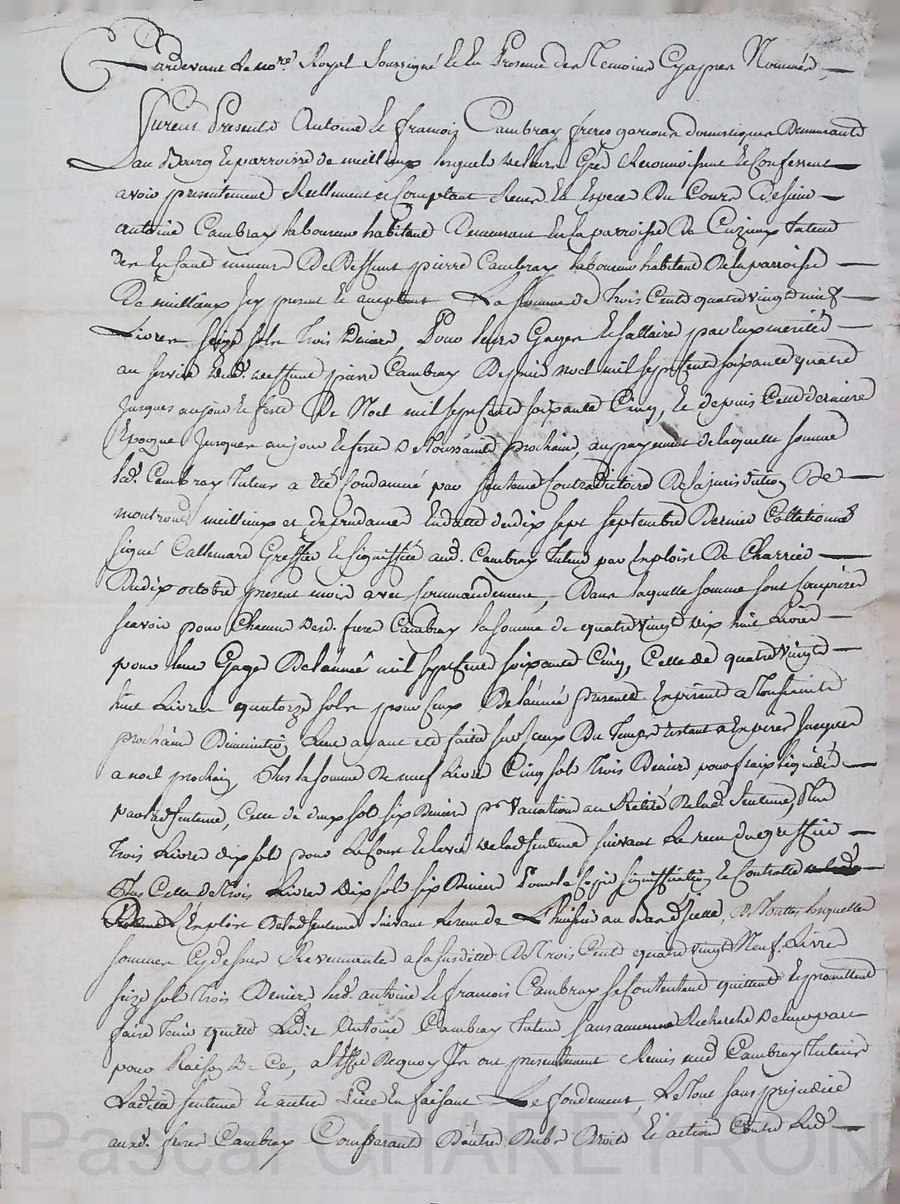 Pardevant Le no.re Royal Soussigné et En Presence des Temoins Cyapres Nommés
furent Presents Antoine et françois Cambray freres garcons domestiques Demeurants
au Bourg et parroisse de meilleux lesquels de leurs Gred Reconnoissent et Confessent
avoir presentement Reellement et Comptant Receu En Espece Du Cours De sieur
antoine Cambray laboureur habitant Demeurant En la parroisse De Cuzieux tuteur
des Enfants mineurs De Deffunt pierre Cambray laboureur habitant De la parroisse
De meilleux Icy present et acceptant La Somme de Trois Cents quatre vingts neuf
Livres Seize sols Trois Deniers, Pour leurs Gages et sallaires par Eux merités
au service dud. deffunt pierre Cambray Depuis noel mil sept cents soixante quatre
jusques au jour et feste De Noel mil sept cents soixante Cinq, et depuis Cette derniere
Epoque jusques au jour et feste De Toussaints prochain, au payement de laquelle somme
led. Cambray Tuteur a été Condamné par sentence Contradictoire De la jurisdiction De
montrond meilleux et En datte du dix sept septembre Dernier Collationné
signé Callemard Greffier et signiffiée aud. Cambray tuteur par Exploit De Charrier
Du dix octobre present mois avec Commandement, Dans laquelle somme sont Comprises
scavoir pour Chacun desd. freres Cambray la somme de quatre vingts Dix huit Livres
pour leurs Gages De l'année mil sept cents soixante Cinq, Celle de quatre vingts
huit Livres quatorze sols pour Ceux De l'année presente Expirante a Toussaints
prochain Diminution Leurs ayant été faite sur Ceux Du Temps restant a Expirer jusques
a noel prochain, Plus la somme De neuf Livres Cinq sols Trois Deniers pour fraix liquidés
par lad. sentence, Celle de deux sols six Deniers p.r Vacation au Retiré De lad. Sentence, Plus
Trois Livres dix sols pour Le scout et levée de lad. sentence suivant Le receu du greffier
Plus Celle de Trois Livres Dix sols six Deniers Pour la Coppie signiffication et Controlle
L'Exploit De lad. sentence suivant le receu de L'huissier au bas d'Icelle, De Toutes lesquelles
sommes Cy dessus Revennantes a la susditte De Trois Cents quatre vingts Neuf Livres
seize sols Trois Deniers lesd. antoine et françois Cambray se Contentent quittent et promettent
faire Tenir quitte Ledit Antoine Cambray Tuteur sans aucune Recherche De leur part
pour Raison De Ce, a l'Effet Dequoy Ils ont presentement Remis aud. Cambray Tuteur
Laditte sentence et autres Pieces En faisant Le fondement, Le Tout sans prejudice
auxd. freres Cambray Comparants D'autres Dubs Droits et actions Contre Led.
Pascal CHAREYRON